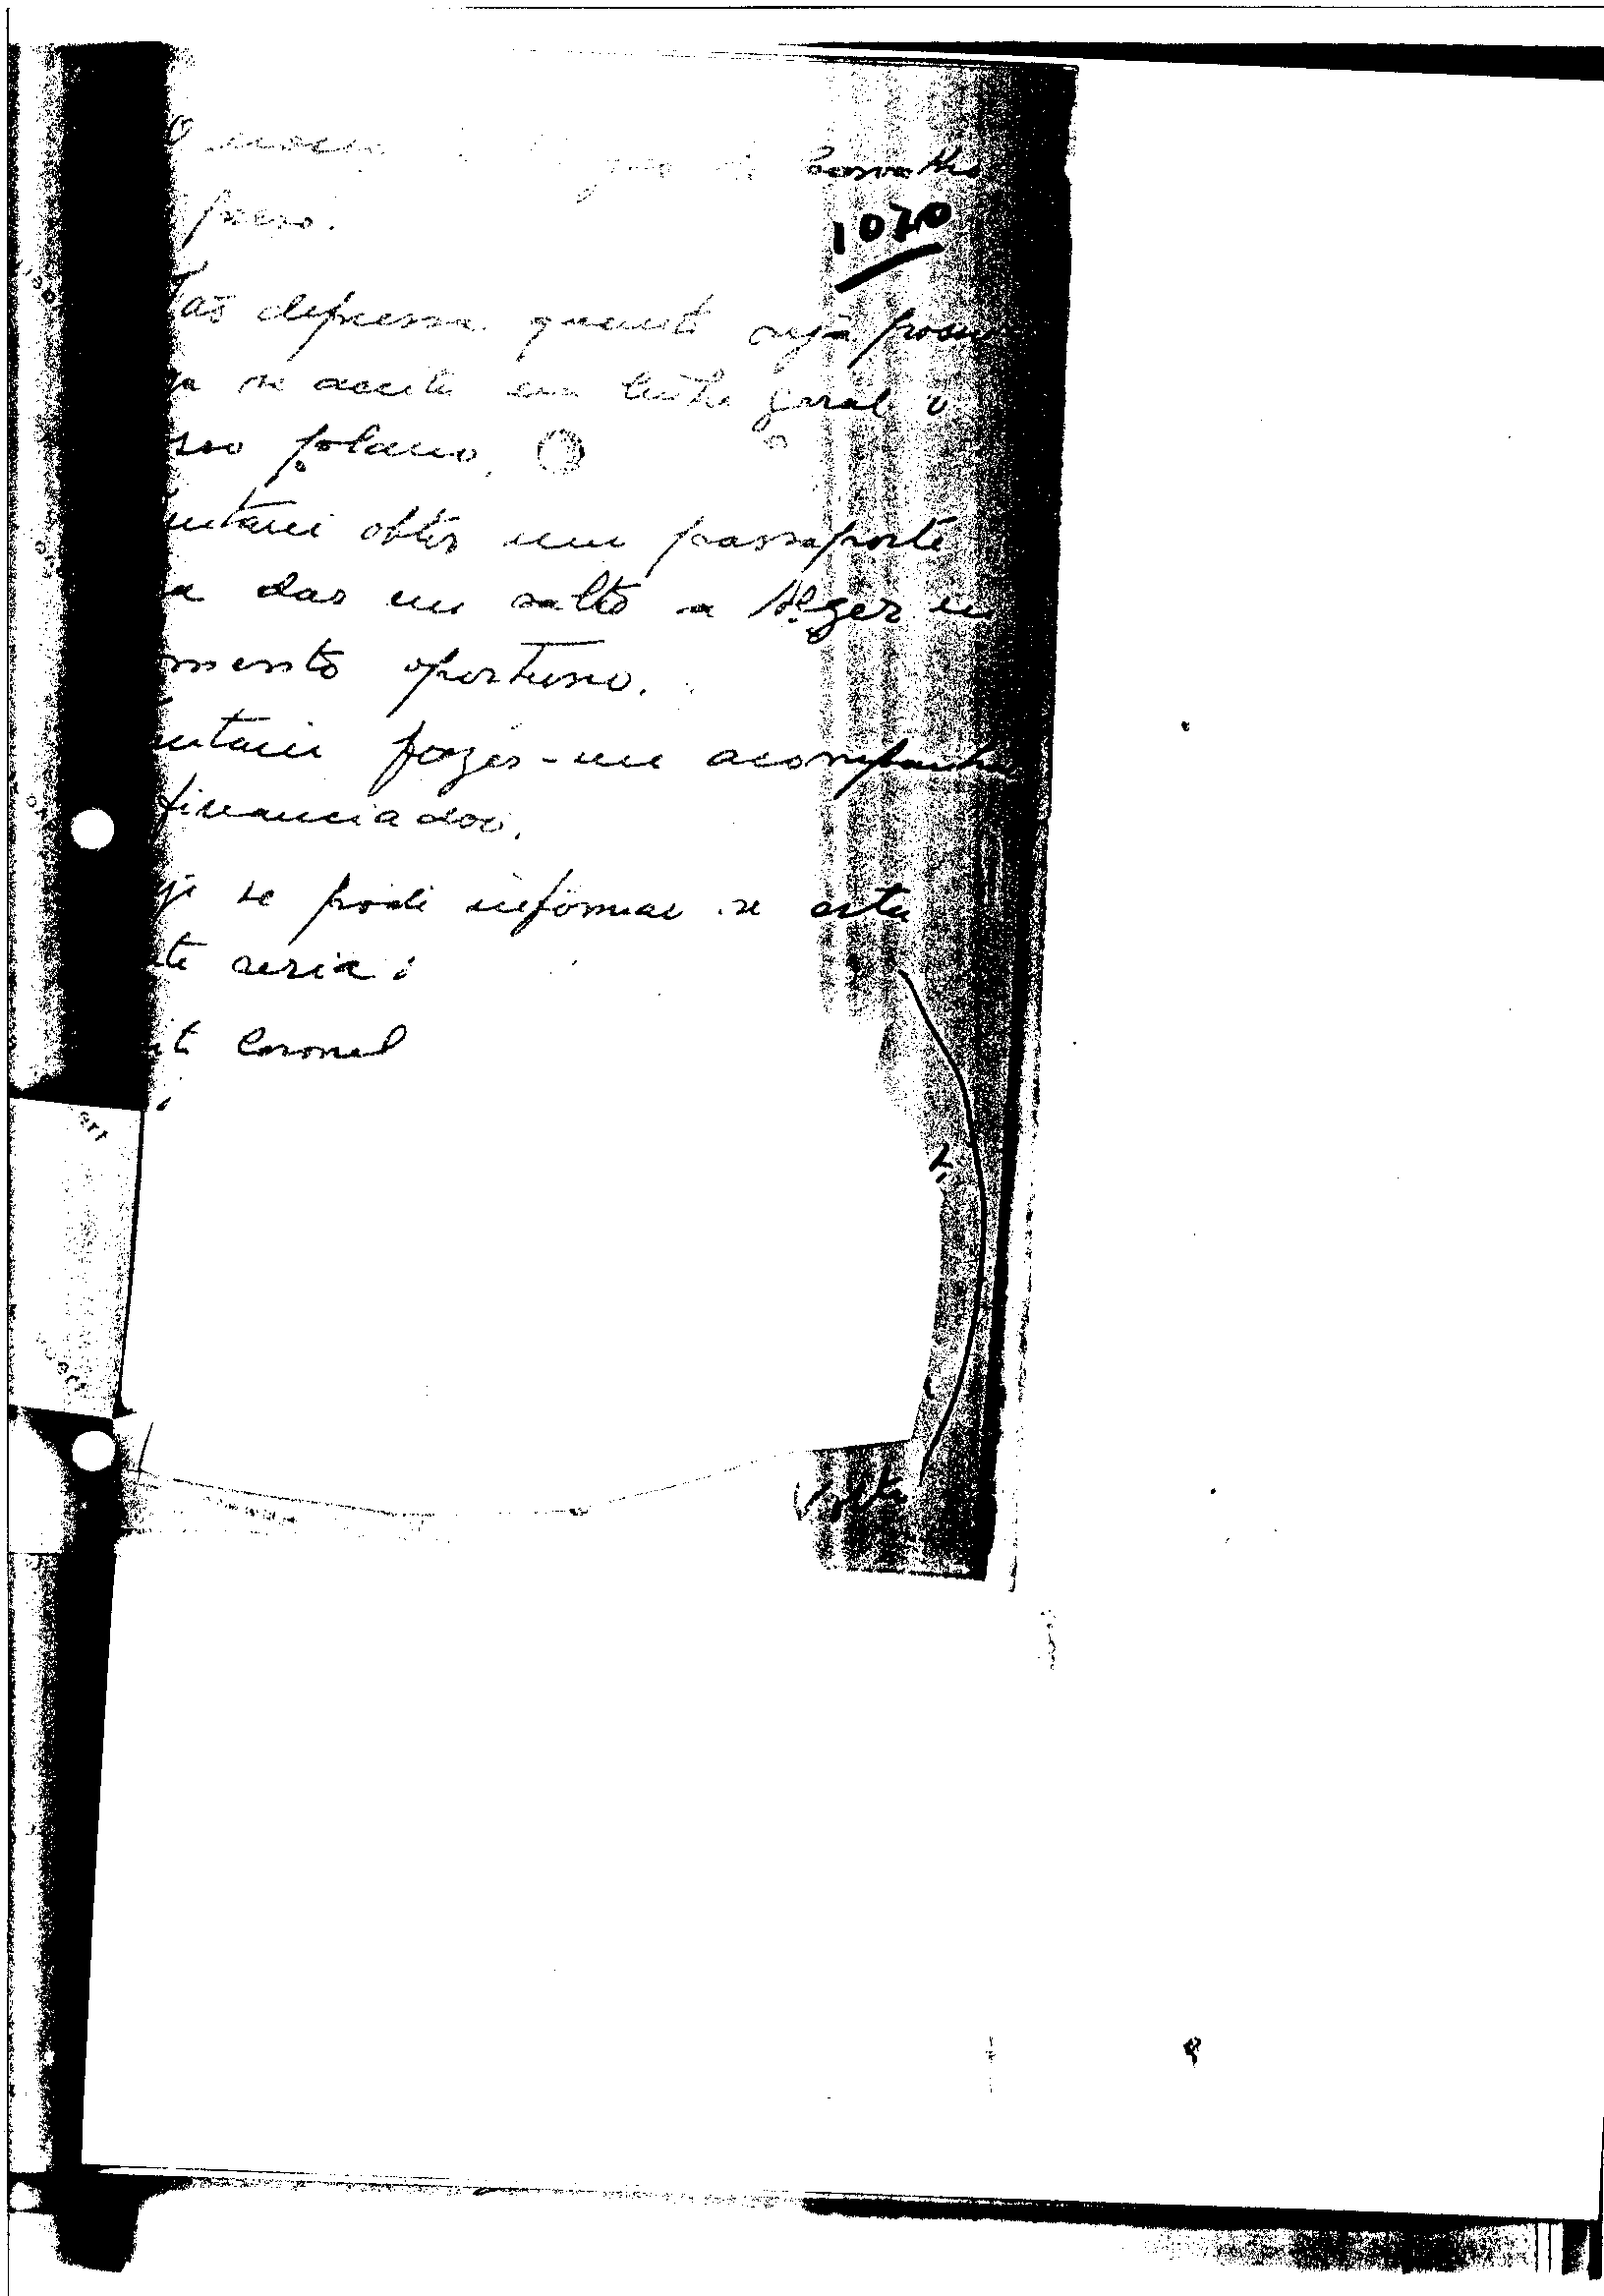 O
Carvalho
preso.
1070
Tão depressa quanto seja possi
se aceite em linha geral o
sso plano.
ntarei obter um passaporte
a dar um salto a Alger em
mento oportuno.
ntarei fazer-me acompanha
financiador.
se pode informar se esta
te seria:
te Coronel
Volta